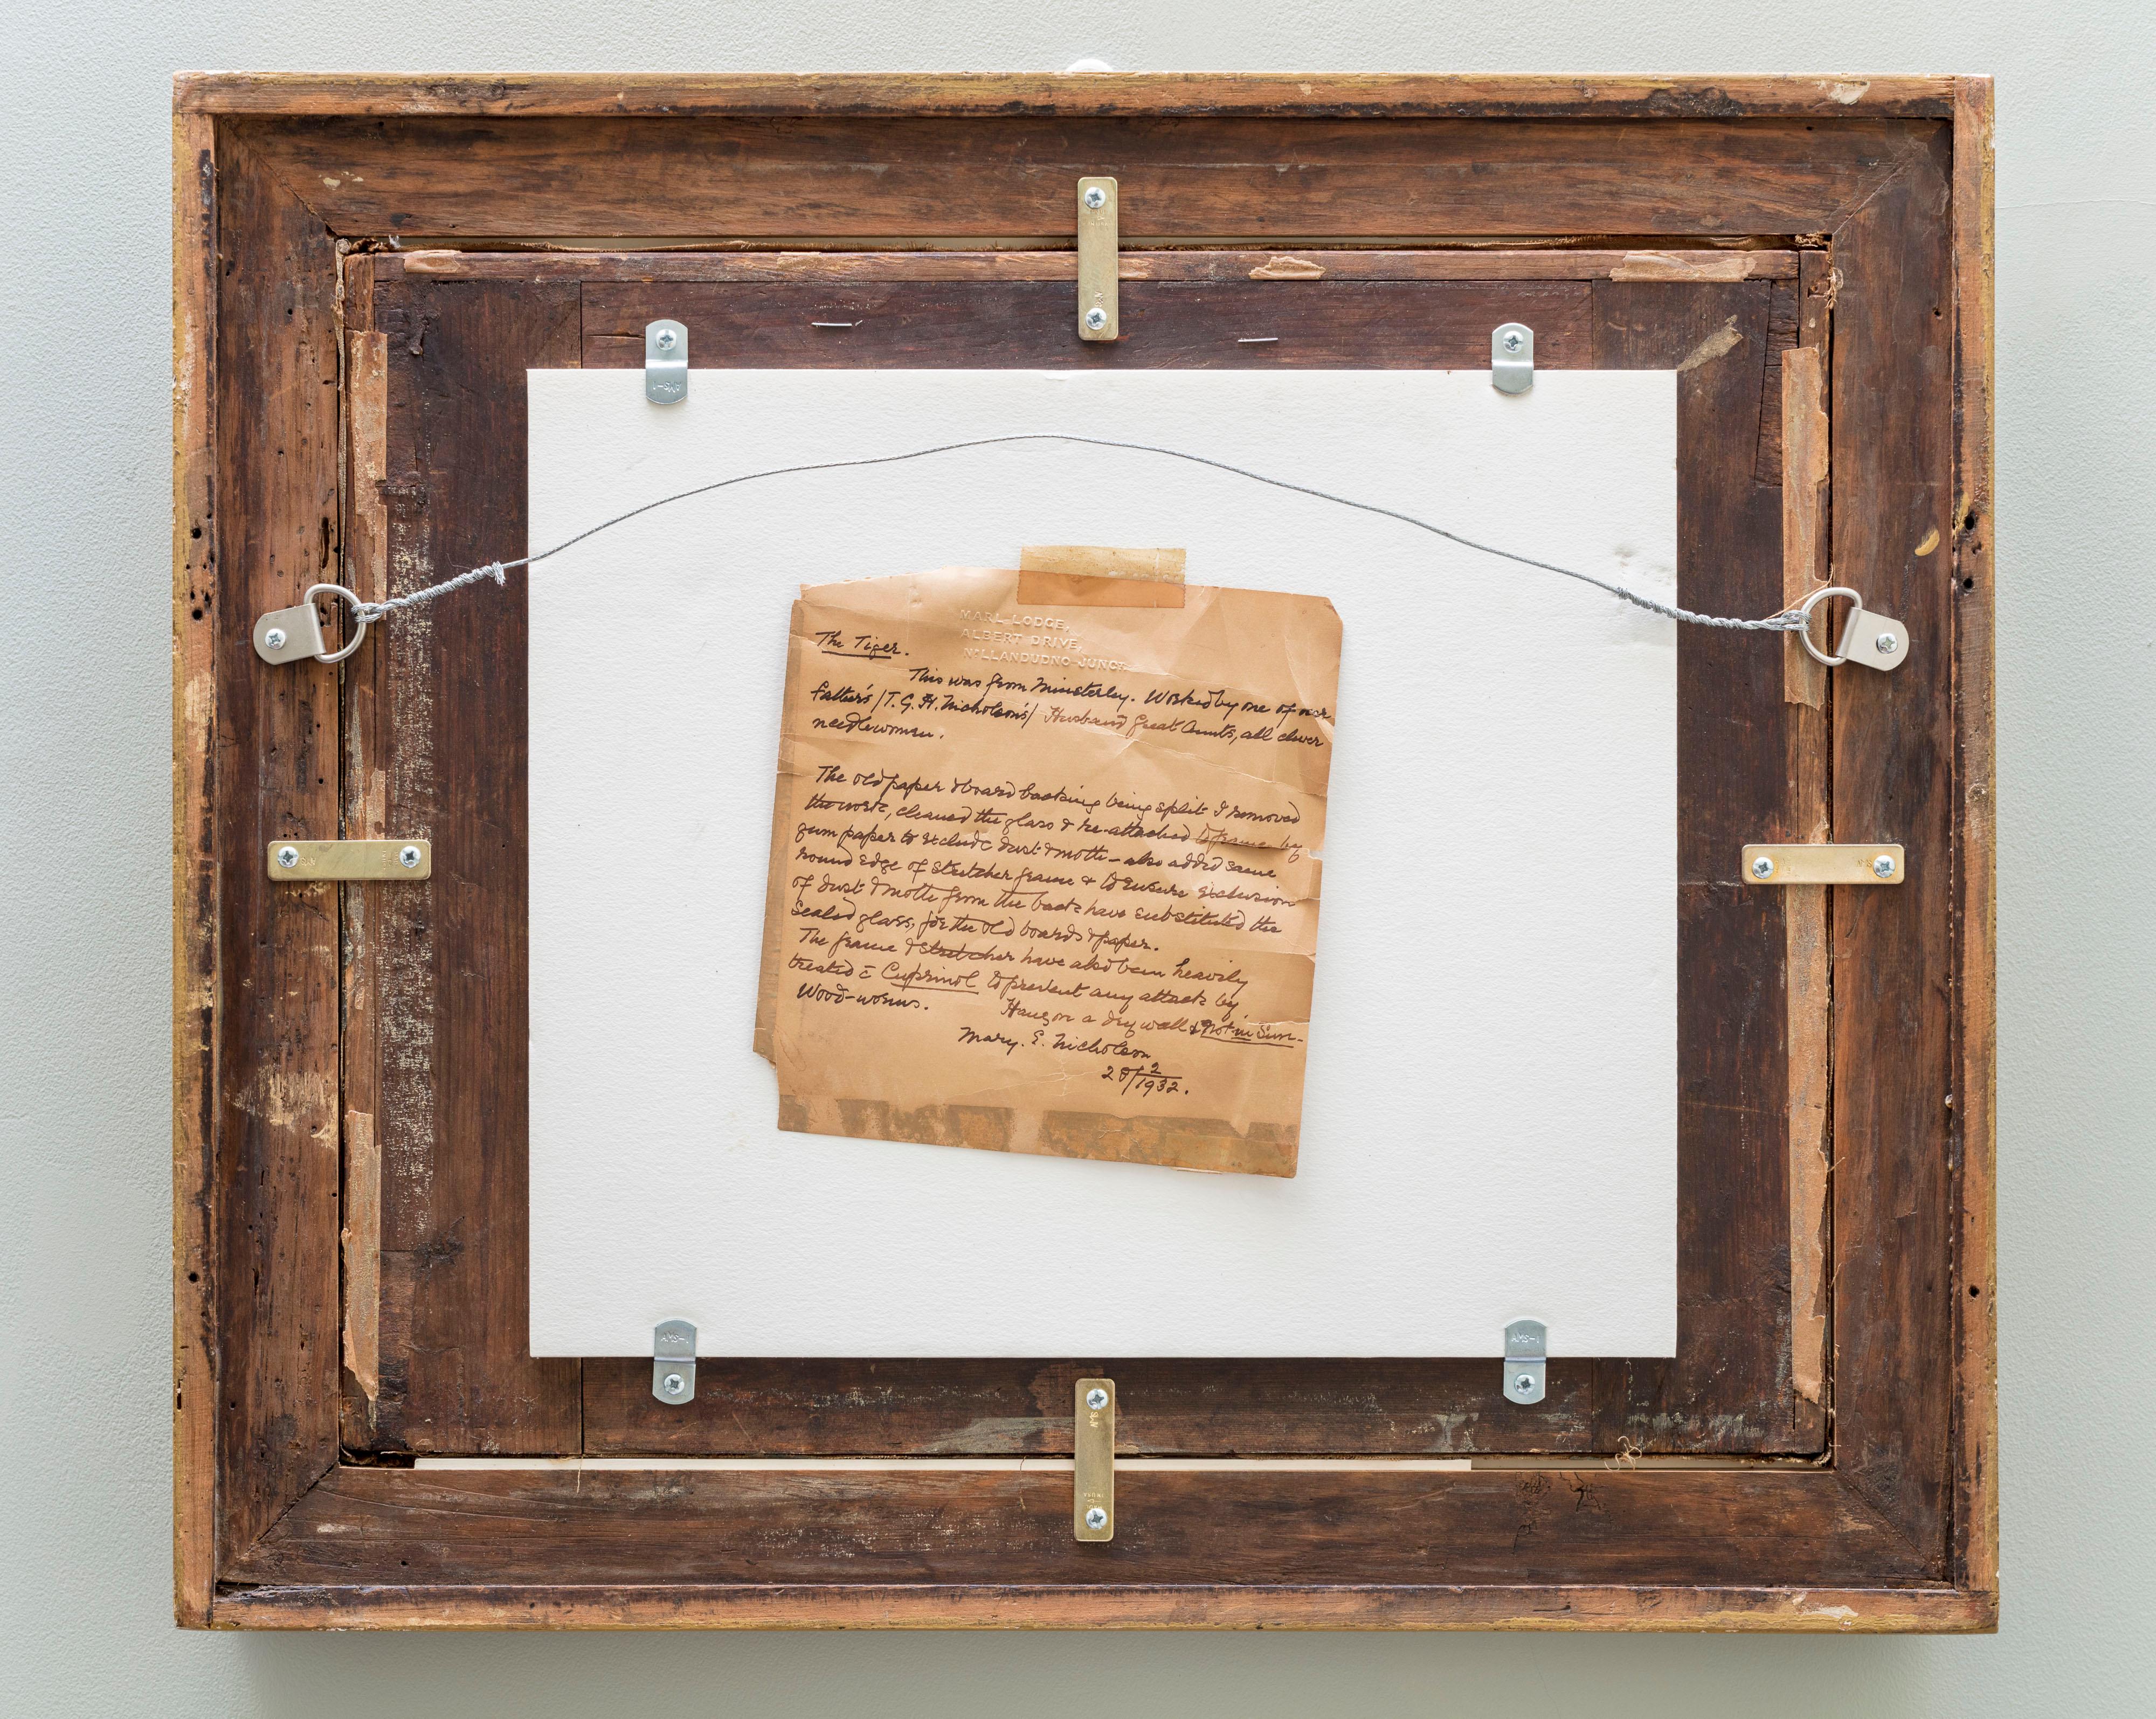 MARL LODGE,
ALBERT DRIVE,
Nr LLANDUDNO JUNCN
The Tiger.
This was from Minsterley. Worked by one of our
father's /T. G. H. Nicholson's/ Husband Great Aunts, all clever
needlewomen.
The old paper & board backing being split I removed
the work, cleaned the glass & re-attached to frame by
gum paper to exclude dust & moth - also added same
round edge of stretcher frame & to ensure exclusion
of dust & moth from the back have substituted the
sealed glass, for the old boards & paper.
The frame & stretcher have also been heavily
treated c̄ Cuprinol to prevent any attack by
Wood-worms.
Hang on a dry wall & Not in Sun-
Mary. E. Nicholson
28/2/1932.
AMS-1
AMS-1
AMS-1